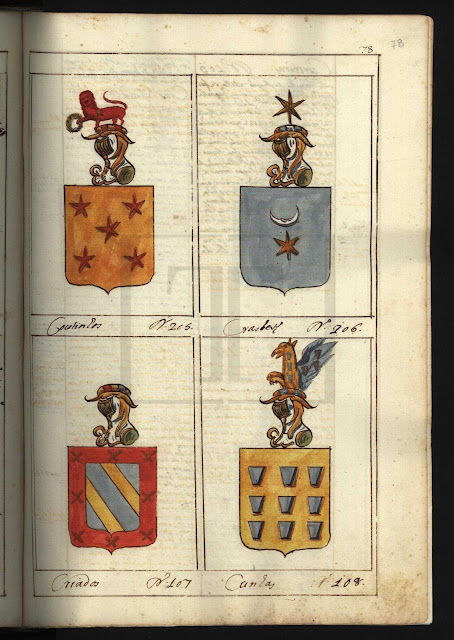 78
78
Coutinhos Nº 205.
Crasbek Nº 206.
Criados Nº 107
Cunhas 108.